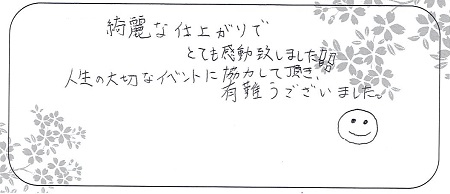 綺麗な仕上がりで
とても感動致しました!!
人生の大切なイベントに協力して頂き、
有難うございました。